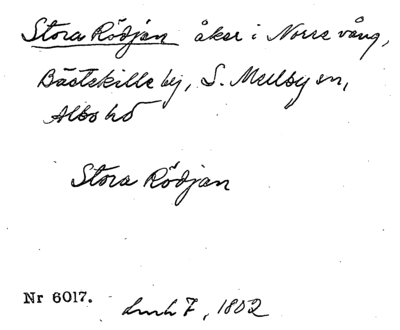 Stora Rödjan åker i Norre vång,
Bästekille by, S. Mellby sn,
Albo hd
Stora Rödjan
Nr 6017. Lmh 7, 1802